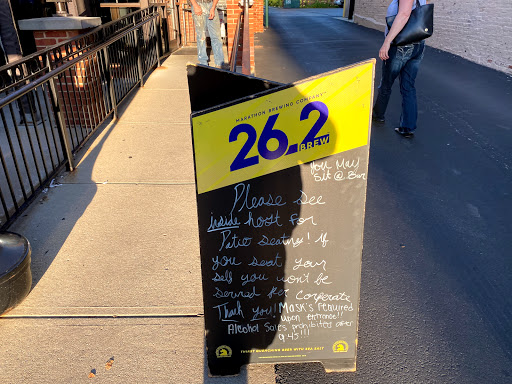 MARATHON BREWING COMPANY
26.2
BREW
You May
Sit @ Bar
Please see
inside host for
Patio seating! If
you seat your
self you won't be
served per Corporate
Thank You!! Mask's required
upon entrance!!
Alcohol Sales prohibited after
9:45!!!
THIRST QUENCHING BEER WITH SEA SALT